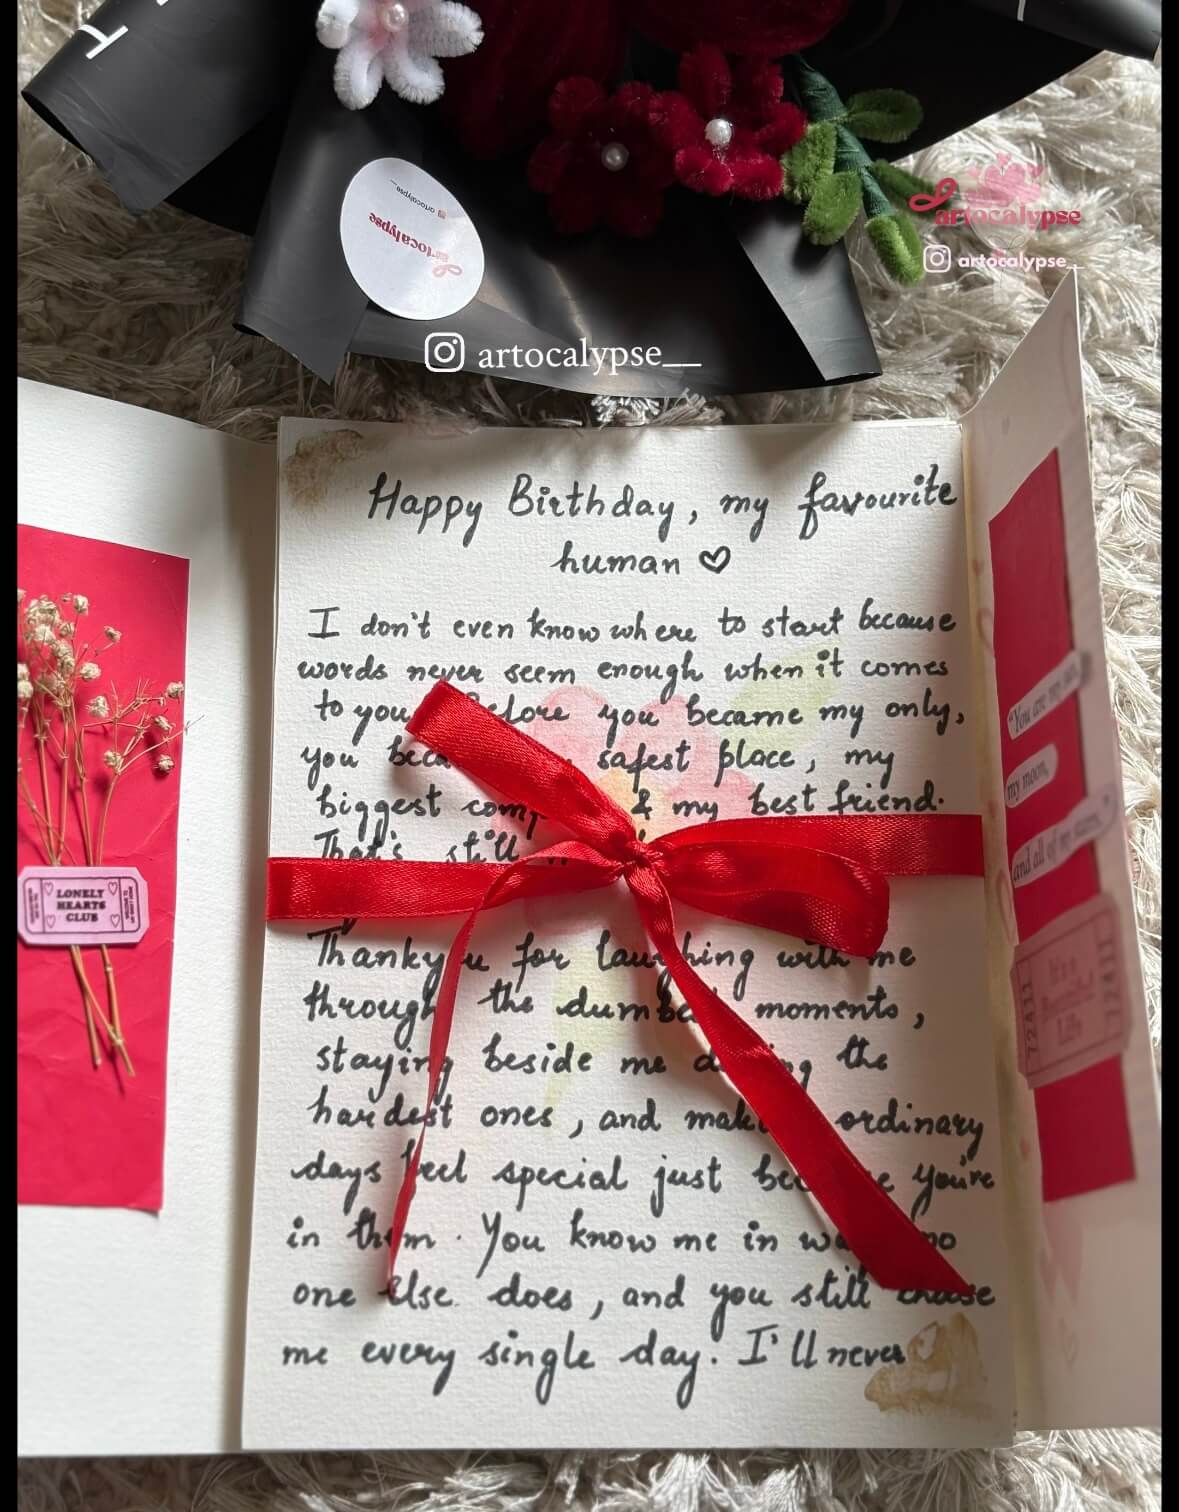 artocalypse
artocalypse__
artocalypse
artocalypse__
artocalypse__
Happy Birthday, my favourite
human
I don't even know where to start because
words never seem enough when it comes
to you. Before you became my only,
you safest place, my
biggest & my best friend.
That's still
Thankyou for laughing with me
through the moments,
staying beside me during the
hardest ones, and making ordinary
days feel special just because you're
in them. You know me in no
one else does, and you still choose
me every single day. I'll never
LONELY
HEARTS
CLUB
"You are my sun,
my moon,
and all of my stars."
72411
72411